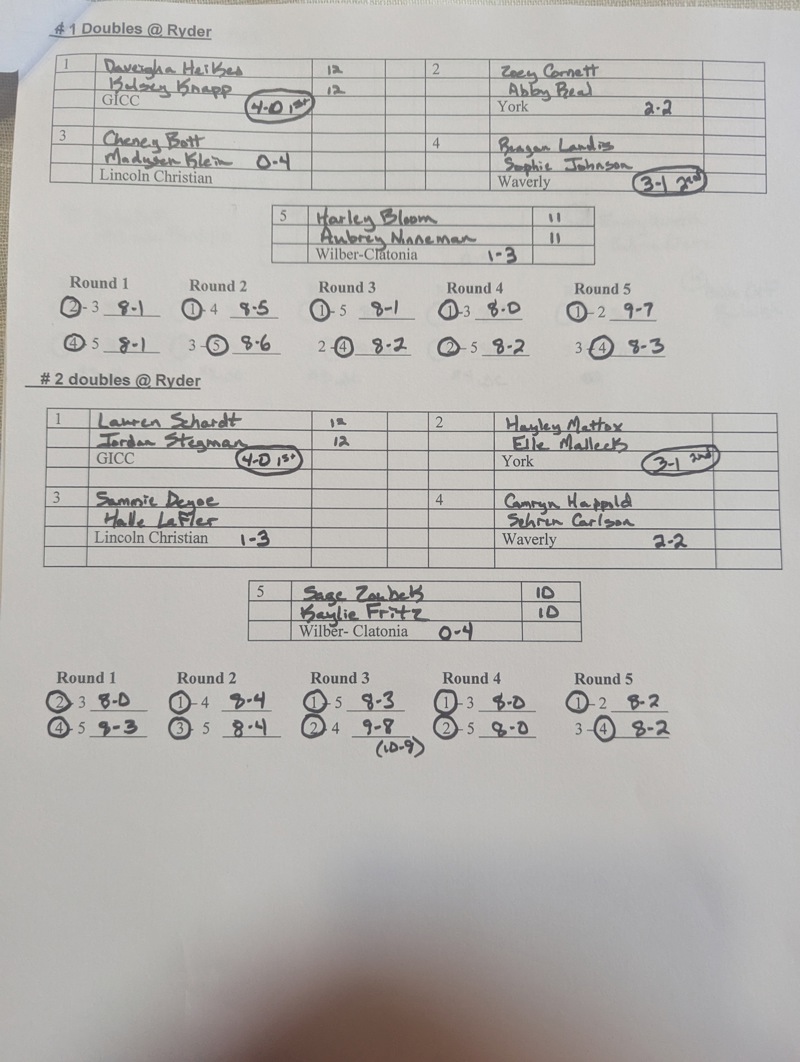 # 1 Doubles @ Ryder
1 Daveigha Heikes 12 2 Zoey Cornett
Kelsey Knapp 12 Abby Beal
GICC 4-0 1st York 2-2
3 Cheney Bott 4 Reagan Landis
Madysen Klein 0-4 Sophie Johnson
Lincoln Christian Waverly 3-1 2nd
5 Harley Bloom 11
Aubrey Ninneman 11
Wilber-Clatonia 1-3
Round 1 Round 2 Round 3 Round 4 Round 5
2-3 8-1 1-4 8-5 1-5 8-1 1-3 8-0 1-2 9-7
4-5 8-1 3-5 8-6 2-4 8-2 2-5 8-2 3-4 8-3
# 2 doubles @ Ryder
1 Lauren Schardt 12 2 Hayley Mattox
Jordan Stegman 12 Elle Malleck
GICC 4-0 1st York 3-1 2nd
3 Sammie Deyoe 4 Camryn Happold
Halle LeFler Carlson
Lincoln Christian 1-3 Waverly 2-2
5 Sage Zoubek 10
Kaylie Fritz 10
Wilber- Clatonia 0-4
Round 1 Round 2 Round 3 Round 4 Round 5
2- 3 8-0 1- 4 8-4 1- 5 8-3 1- 3 8-0 1-2 8-2
4- 5 8-3 3- 5 8-4 2- 4 9-8 2- 5 8-0 3-4 8-2
(10-9)